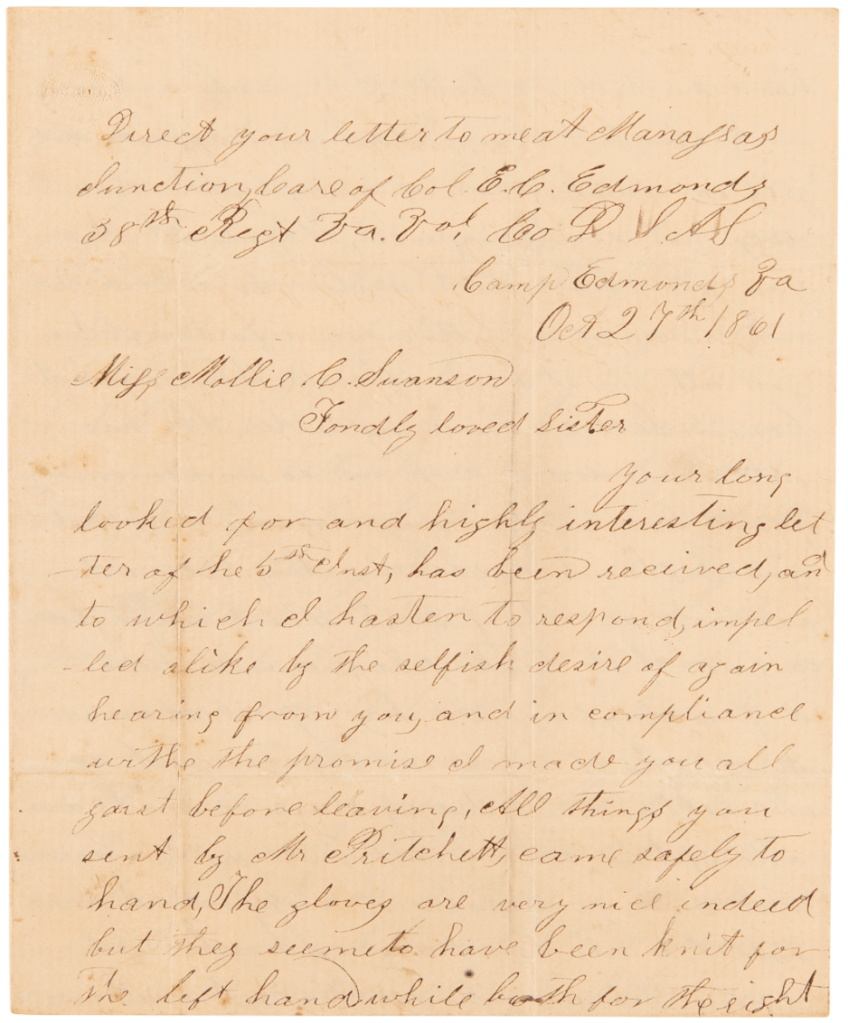 Direct your letter to me at Manassas
Junction, Care of Col. E. C. Edmonds
38th Regt Va. Vol. Co D
Camp Edmonds Va
Oct 27th 1861
Miss Mollie C. Swanson
Fondly loved sister
your long
looked for and highly interesting let
ter of he 5th Inst, has been received, and
to which I hasten to respond, impel
-led alike by the selfish desire of again
hearing from you, and in compliance
withe the promise I made you all
before leaving, All things you
sent by Mr Pritchett, came safely to
hand, The gloves are very nice indeed
but they seeme to have been knit for
the left hand while both for the